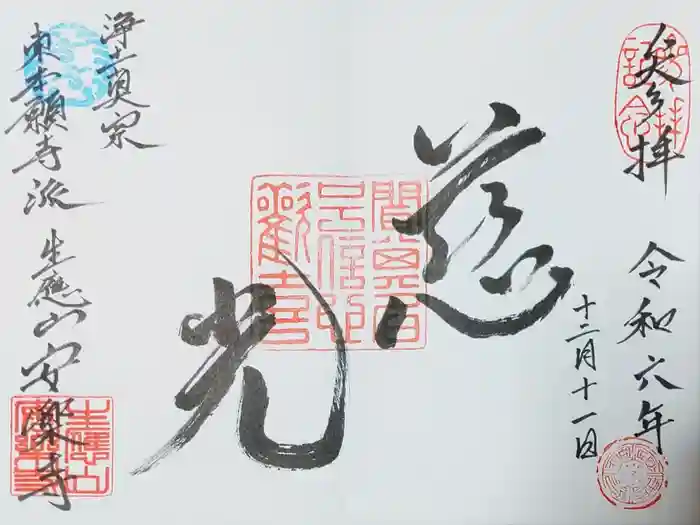 奉拝
令和六年
十二月十一日
慈光
浄土真宗
東本願寺派 生應山 安樂寺